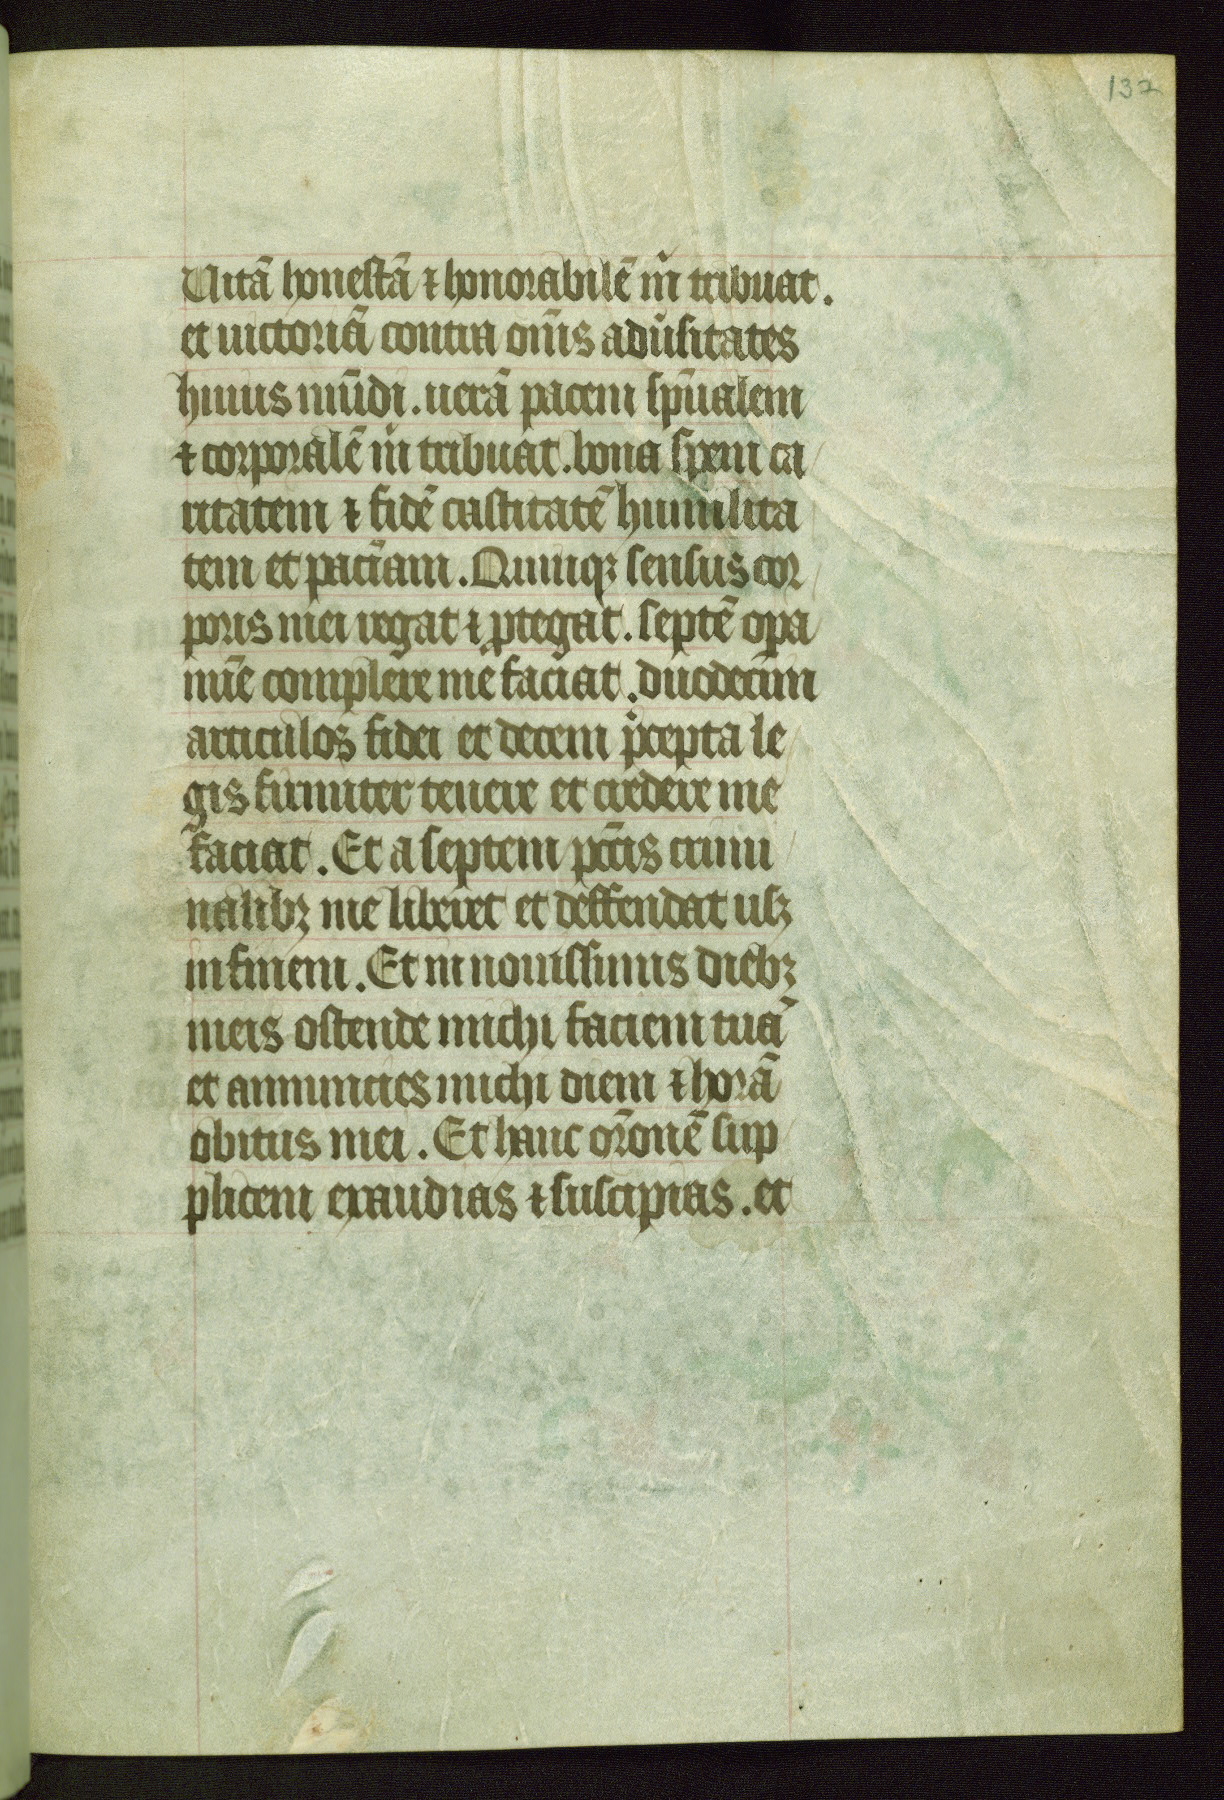 137
Uitā honestā ⁊ honorabilē m̄ tribuat.
et uictoriā contra om̄s adūsitates
huius mūdi. uerā pacem sp̄ualem
⁊ corporalē m̄ tribuat. bona spem ca
ritatem ⁊ fidē castitatē humilita
tem et paciām. Quinqꝫ sensus cor
poris mei regat ⁊ ꝓtegat. septē opa
mīe complere me faciat. duodecim
articulos fidei et decem p̄cepta le
gis firmiter tenere et credere me
faciat. Et a septem pccīs crimi
nalibꝫ me liberet et deffendat usꝫ
in finem. Et in nouissimis diebꝫ
meis ostende michi faciem tuā
et annuncies michi diem ⁊ horā
obitus mei. Et hanc or̄onē sup
plicem exaudias ⁊ suscipias. et